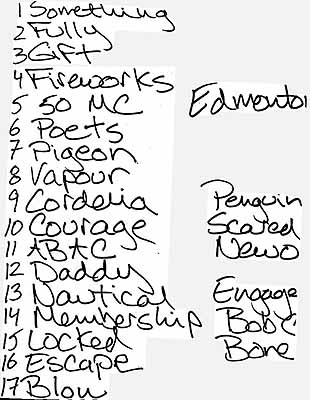 1 Something
2 Fully
3 Gift
4 Fireworks
5 50 MC Edmonton
6 Poets
7 Pigeon
8 Vapour
9 Cordelia Penguin
10 Courage Scared
11 ABAC NewO
12 Daddy
13 Nautical Engage
14 Membership
15 Locked Bone
16 Escape
17 Blow